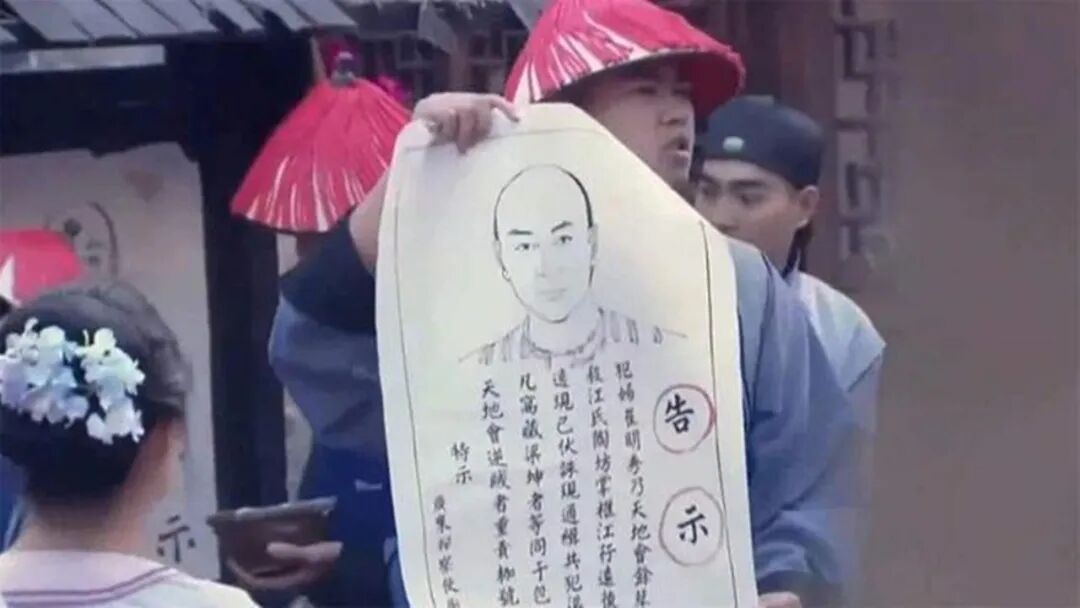 告示
犯婦崔明秀乃天地會餘
殺江氏陶坊掌櫃江行遠後
遠現已伏誅現通緝共犯梁
凡窩藏梁坤者等同于包
天地會逆贼者重責枷號
特示
廣東按察使
示